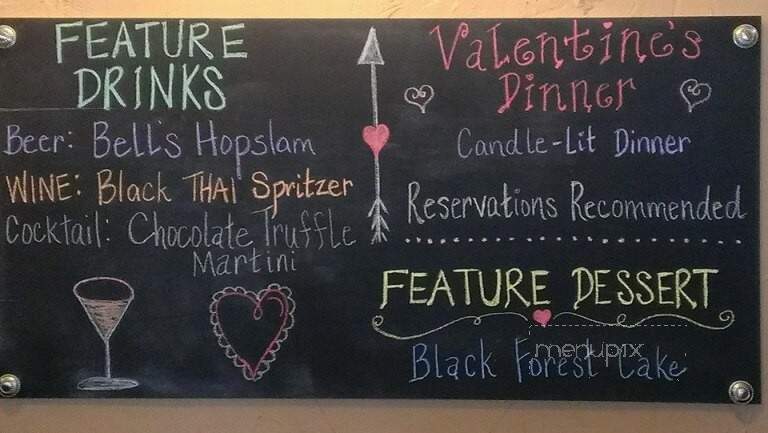 FEATURE
DRINKS
Beer: Bell's Hopslam
WINE: Black THAI Spritzer
Cocktail: Chocolate Truffle
Martini
Valentine's
Dinner
Candle-Lit Dinner
Reservations Recommended
FEATURE DESSERT
Black Forest Cake
menupix